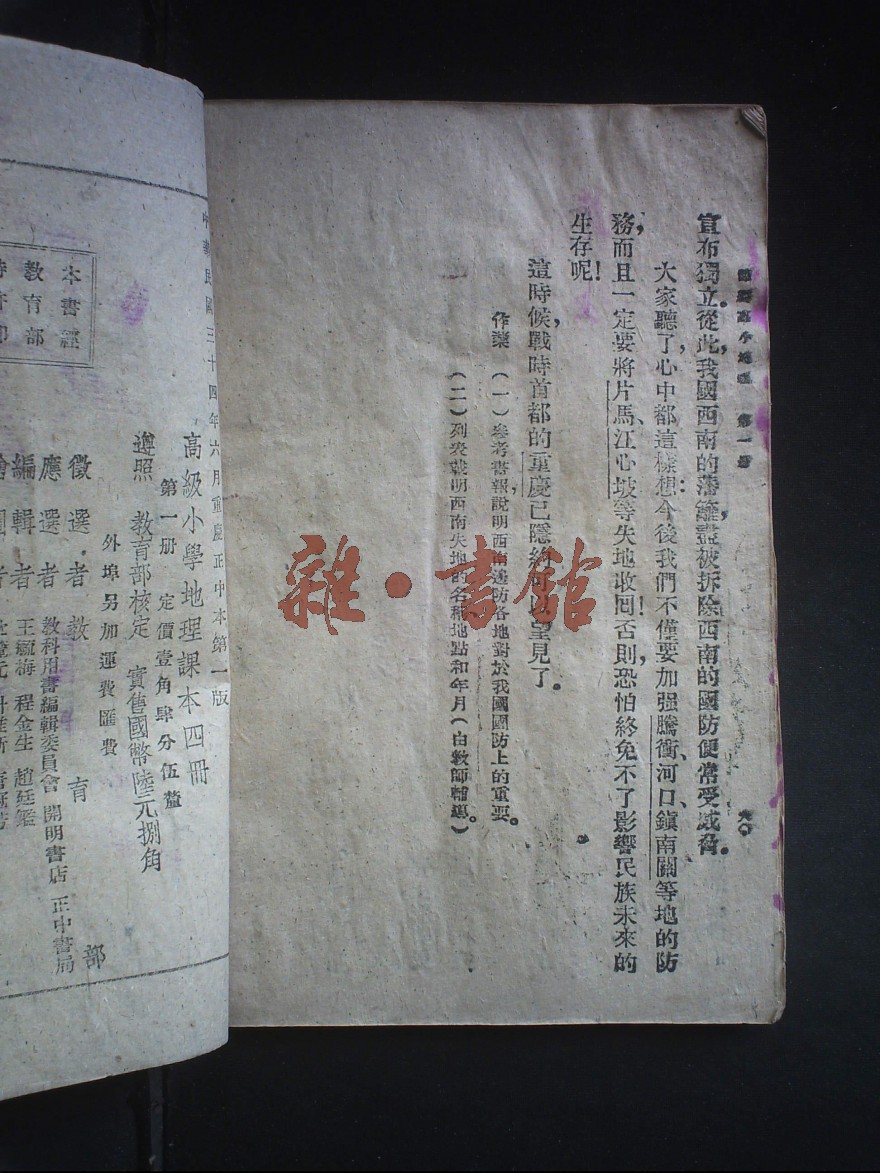 宣布獨立。從此，我國西南的藩籬，盡被拆除，西南的國防便常受威脅。
大家聽了，心中都這樣想：今後我們不僅要加强騰衝、河口、鎮南關等地的防
務，而且一定要將片馬、江心坡等失地收回！否則，恐怕終免不了影響民族未來的
生存呢！
這時候，戰時首都的重慶，已隱約可以望見了。
作業 （一）參考書報說明西南邊防各地對於我國國防上的重要。
（二）列表載明西南失地的名稱地點和年月（由教師輔導）。
第一册
六〇
雜·書館
中華民國三十四年六月重慶正中本第一版
高級小學地理課本四冊
第一册 定價壹角肆分伍釐
遵照 教育部核定 實售國幣陸元捌角
外埠另加運費匯費
徵選者 教育部
應選者 教科用書編輯委員會 開明書店 正中書局
編輯者 王毓梅 程金生 趙廷鑑
本書經
教育部